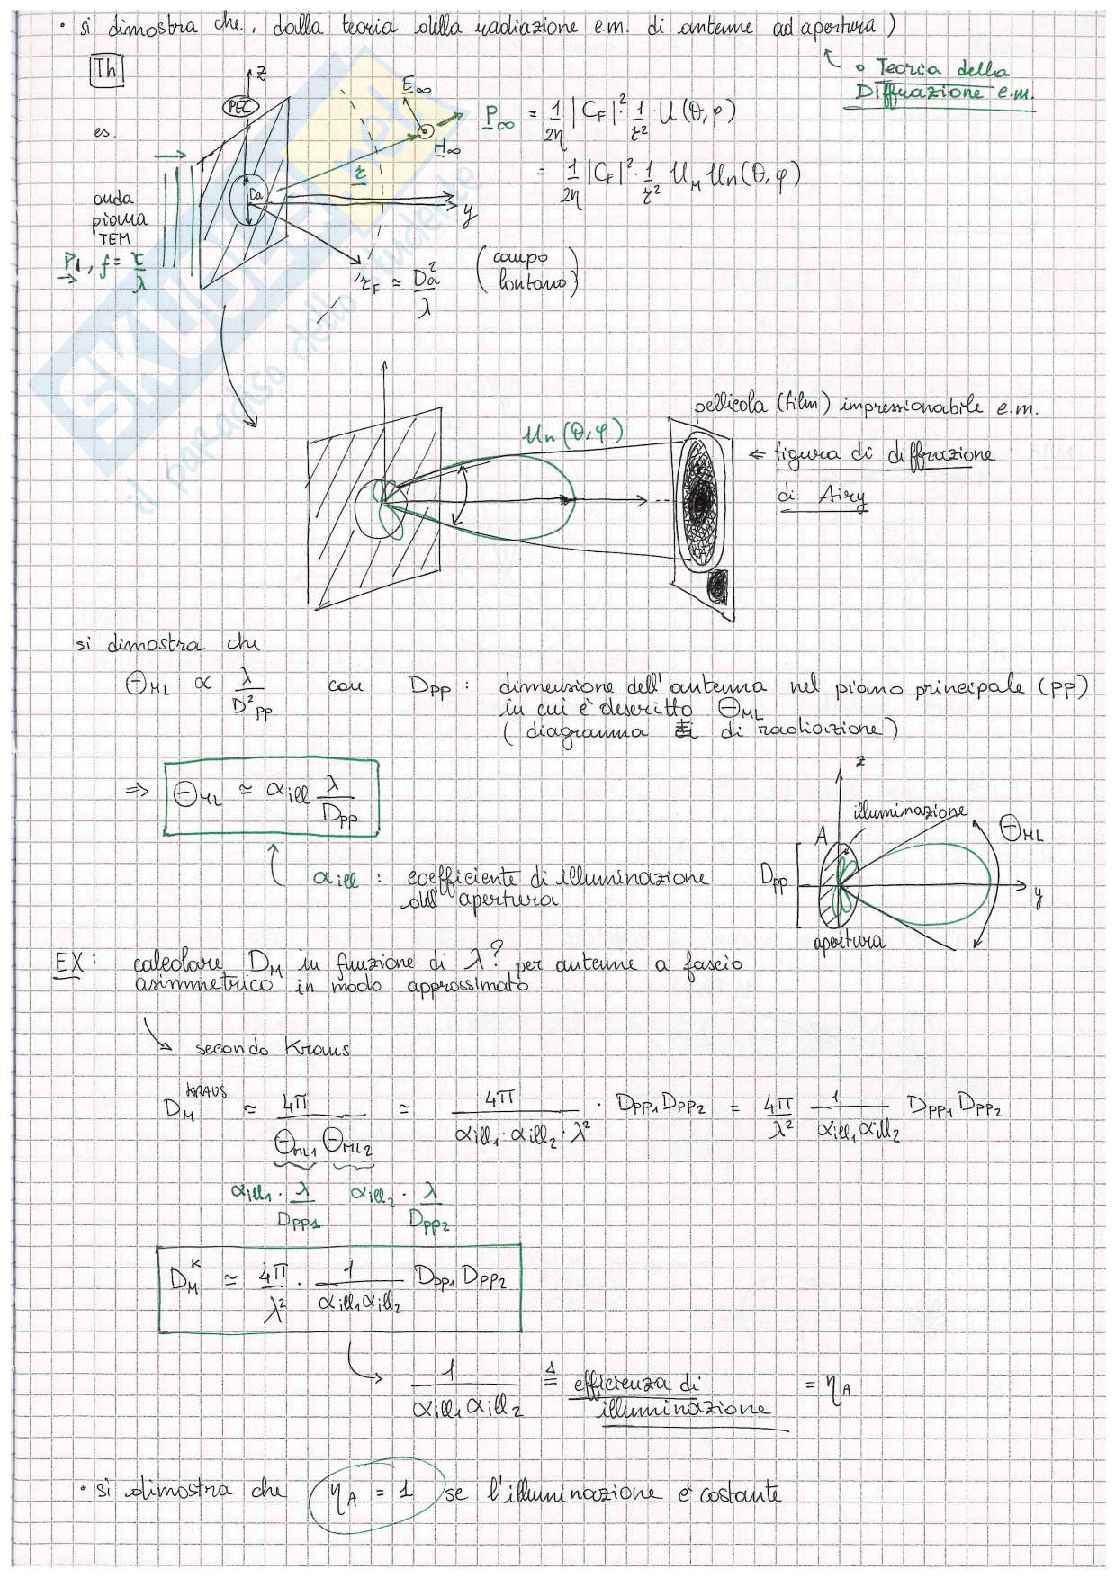 • si dimostra che, dalla teoria della radiazione e.m. di antenne ad apertura)
Th
• Teoria della
Diffrazione e.m.
z
PEC
es.
E∞
H∞
P∞ = 1/2η |C_F|² · 1/r² · U(θ,φ)
= 1/2η |C_F|² · 1/r² U_M Un(θ,φ)
onda
piana
TEM
Da
r
y
P_i, f = c/λ
r_F ≈ Da²/λ (campo lontano)
pellicola (film) impressionabile e.m.
Un(θ,φ)
← figura di diffrazione
di Airy
si dimostra che
Θ_ML ∝ λ/D²pp con Dpp : dimensione dell'antenna nel piano principale (PP)
in cui è descritto Θ_ML
(diagramma di radiazione)
⇒ Θ_ML ≃ αill λ/Dpp
z
illuminazione
A
Θ_ML
Dpp
y
apertura
αill : coefficiente di illuminazione
dell'apertura
EX: calcolare D_M in funzione di λ? per antenne a fascio
asimmetrico in modo approssimato
↘ secondo Kraus
D_M^KRAUS ≃ 4π/(Θ_ML1 Θ_ML2) = 4π/(αill1 · αill2 · λ²) · Dpp1 Dpp2 = 4π/λ² 1/(αill1 αill2) Dpp1 Dpp2
αill1 · λ/Dpp1 αill2 · λ/Dpp2
D_M^K ≃ 4π/λ² · 1/(αill1 αill2) Dpp1 Dpp2
1/(αill1 αill2) ≜ efficienza di illuminazione = η_A
• si dimostra che η_A = 1 se l'illuminazione è costante